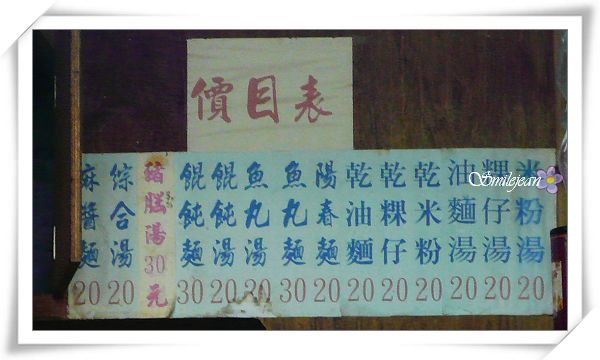 價目表
米粉湯 20
粿仔湯 20
油麵湯 20
乾米粉 20
乾粿仔 20
乾油麵 20
陽春麵 20
魚丸麵 30
魚丸湯 20
餛飩湯 20
餛飩麵 30
豬腦湯 30元
綜合湯 20
麻醬麵 20
Smilejean